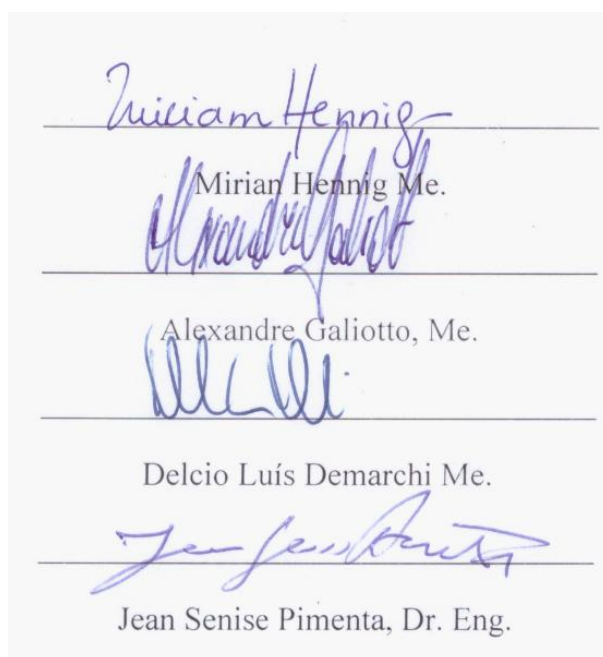 Miriam Hennig
Mirian Hennig Me.
Alexandre Galiotto, Me.
Delcio Luís Demarchi Me.
Jean Senise Pimenta, Dr. Eng.